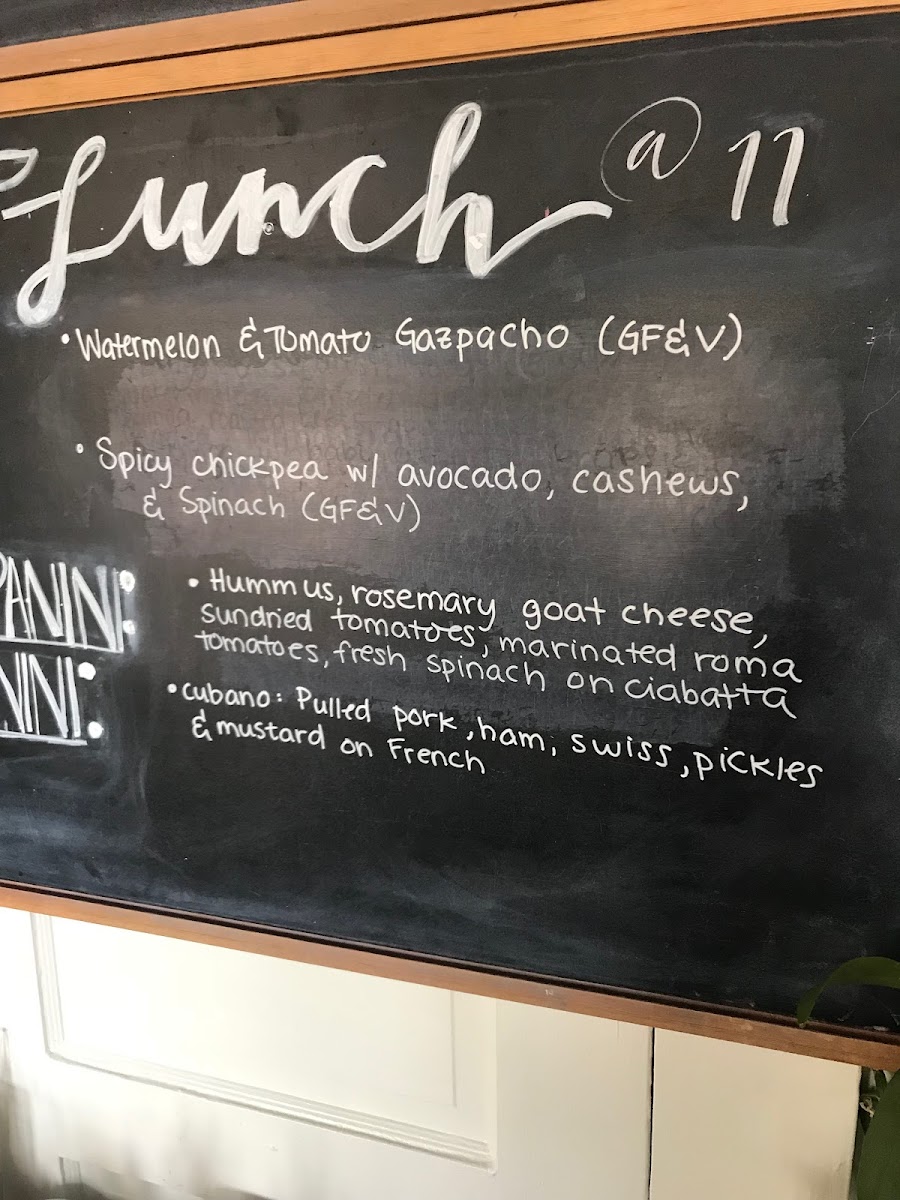 Lunch @ 11
• Watermelon & Tomato Gazpacho (GF&V)
• Spicy chickpea w/ avocado, cashews,
& Spinach (GF&V)
PANINI:
• Hummus, rosemary goat cheese,
sundried tomatoes, marinated roma
tomatoes, fresh spinach on ciabatta
NINI:
• cubano: Pulled pork, ham, swiss, pickles
& mustard on French